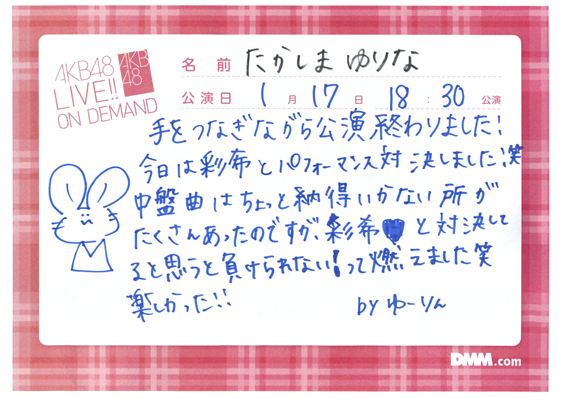 AKB48
LIVE!!
ON DEMAND
AKB
48
名前 たかしま ゆりな
公演日 1月17日 18:30公演
手をつなぎながら公演終わりました!
今日は彩希とパフォーマンス対決しました!笑
中盤曲はちょっと納得いかない所が
たくさんあったのですが、彩希♥と対決して
ると思うと負けられない!って燃えました笑
楽しかった!!
by ゆーりん
DMM.com